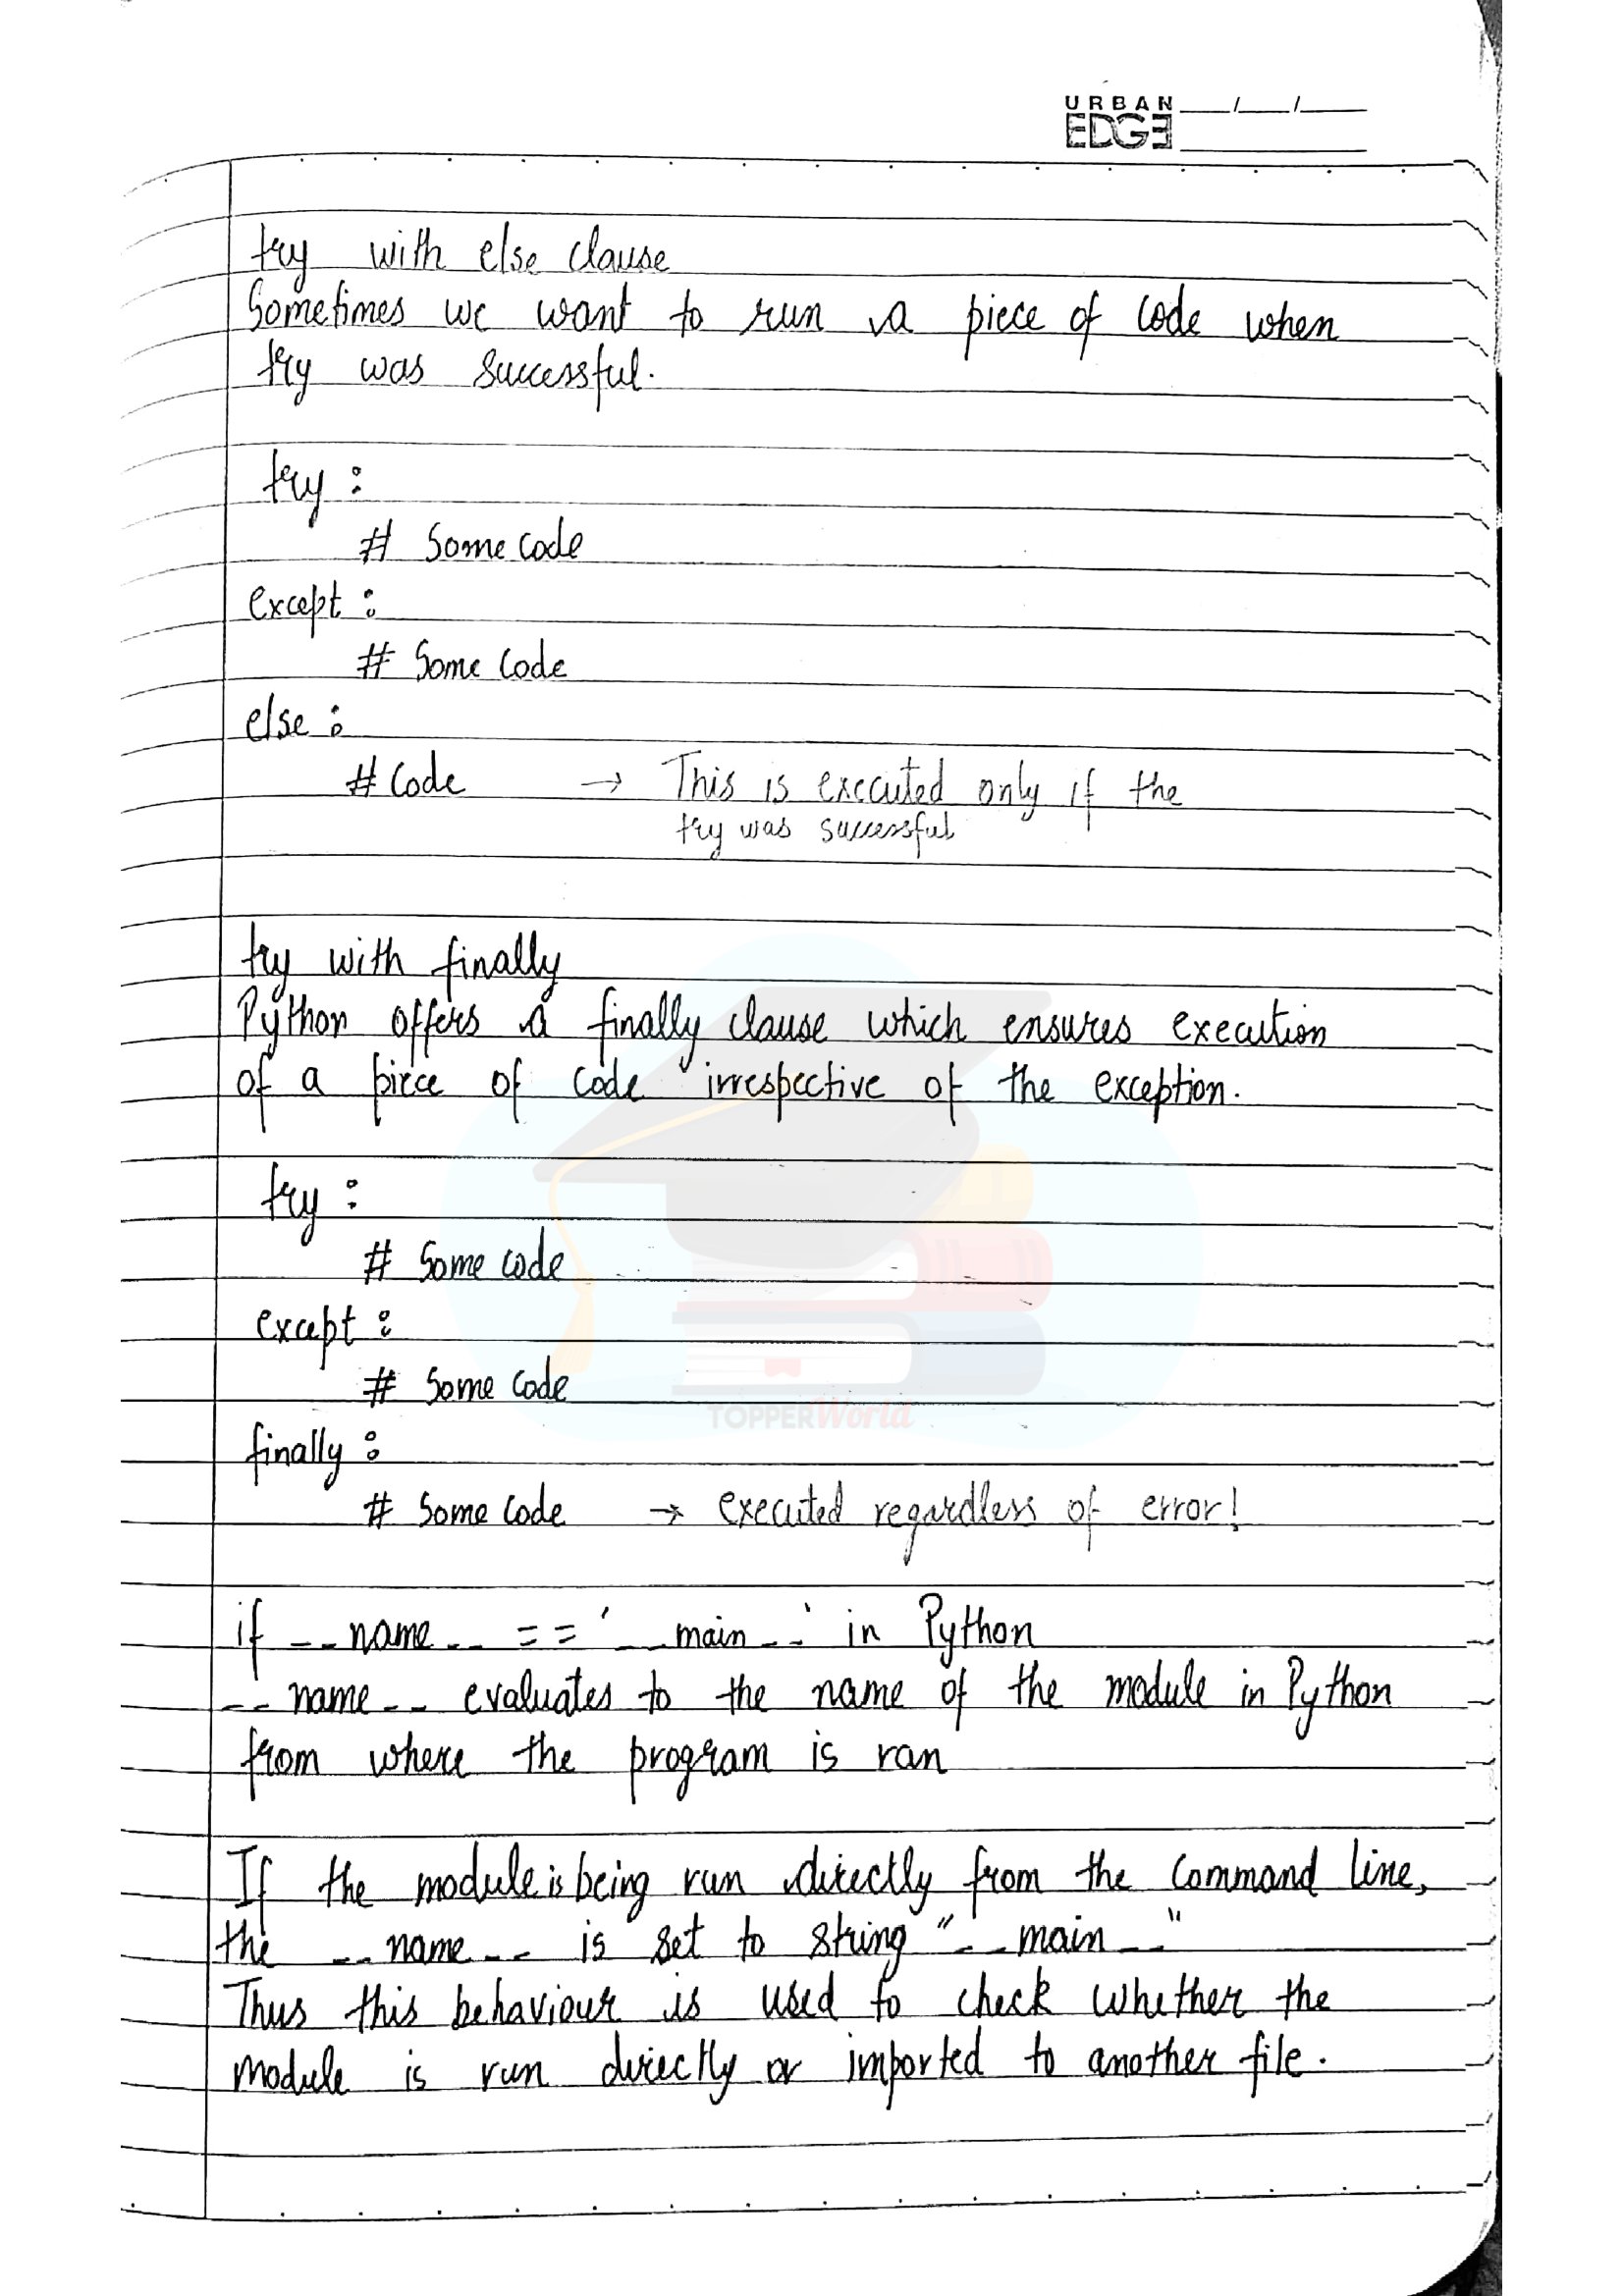 URBAN
EDGE
try with else clause
Sometimes we want to run a piece of code when
try was successful.
try :
# Some code
except :
# Some code
else :
# Code → This is executed only if the
try was successful
try with finally
Python offers a finally clause which ensures execution
of a piece of code irrespective of the exception.
try :
# Some code
except :
# Some code
TOPPERWorld
finally :
# Some code → executed regardless of error!
if __name__ == '__main__' in Python
__name__ evaluates to the name of the module in Python
from where the program is ran
If the module is being run directly from the command line,
the __name__ is set to string "__main__"
Thus this behaviour is used to check whether the
module is run directly or imported to another file.